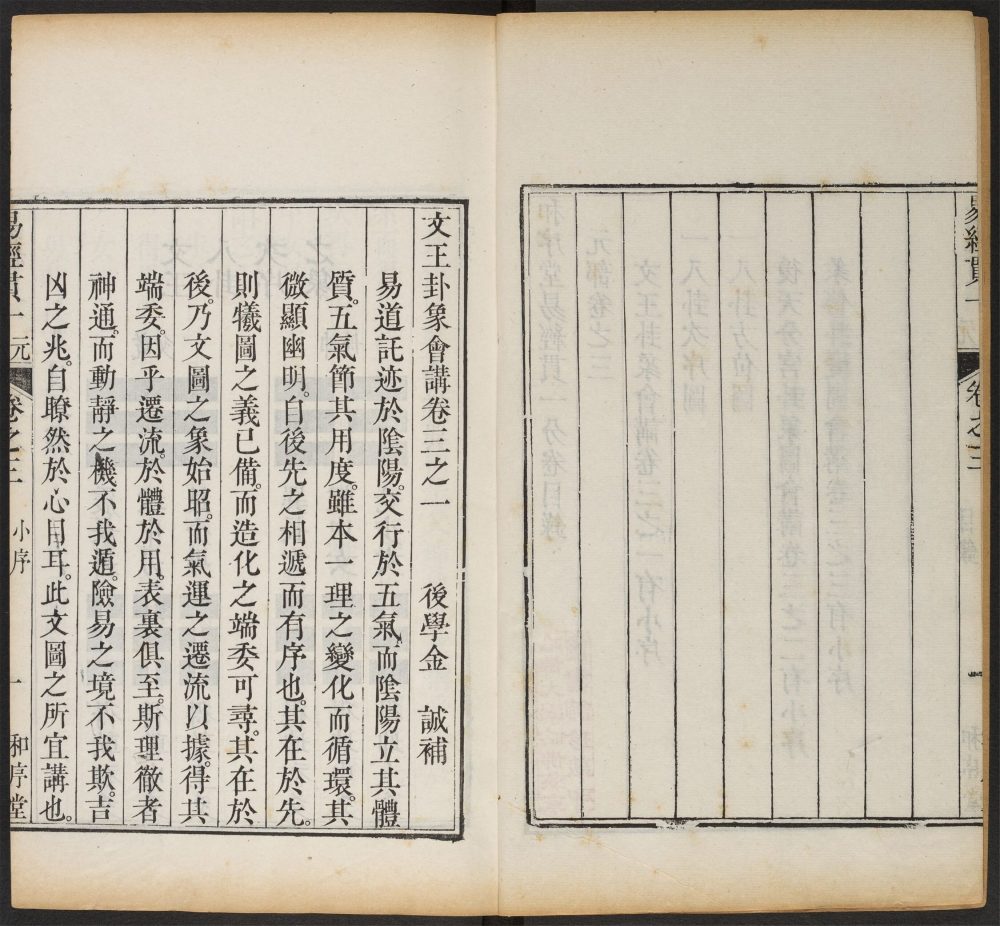 易經貫一 元
卷之三
文王卦象會講卷三之一 後學金 誠補
易道託迹於陰陽。交行於五氣。而陰陽立其體
質。五氣節其用度。雖本一理之變化而循環。其
微顯幽明。自後先之相遞而有序也。其在於先。
則犧圖之義已備。而造化之端委可尋。其在於
後。乃文圖之象始昭。而氣運之遷流以據。得其
端委。因乎遷流。於體於用。表裏俱至。斯理徹者
神通。而動靜之機不我遁。險易之境不我欺。吉
凶之兆。自瞭然於心目耳。此文圖之所宜講也。
易經貫一 元 卷之三 小序 一 和序堂